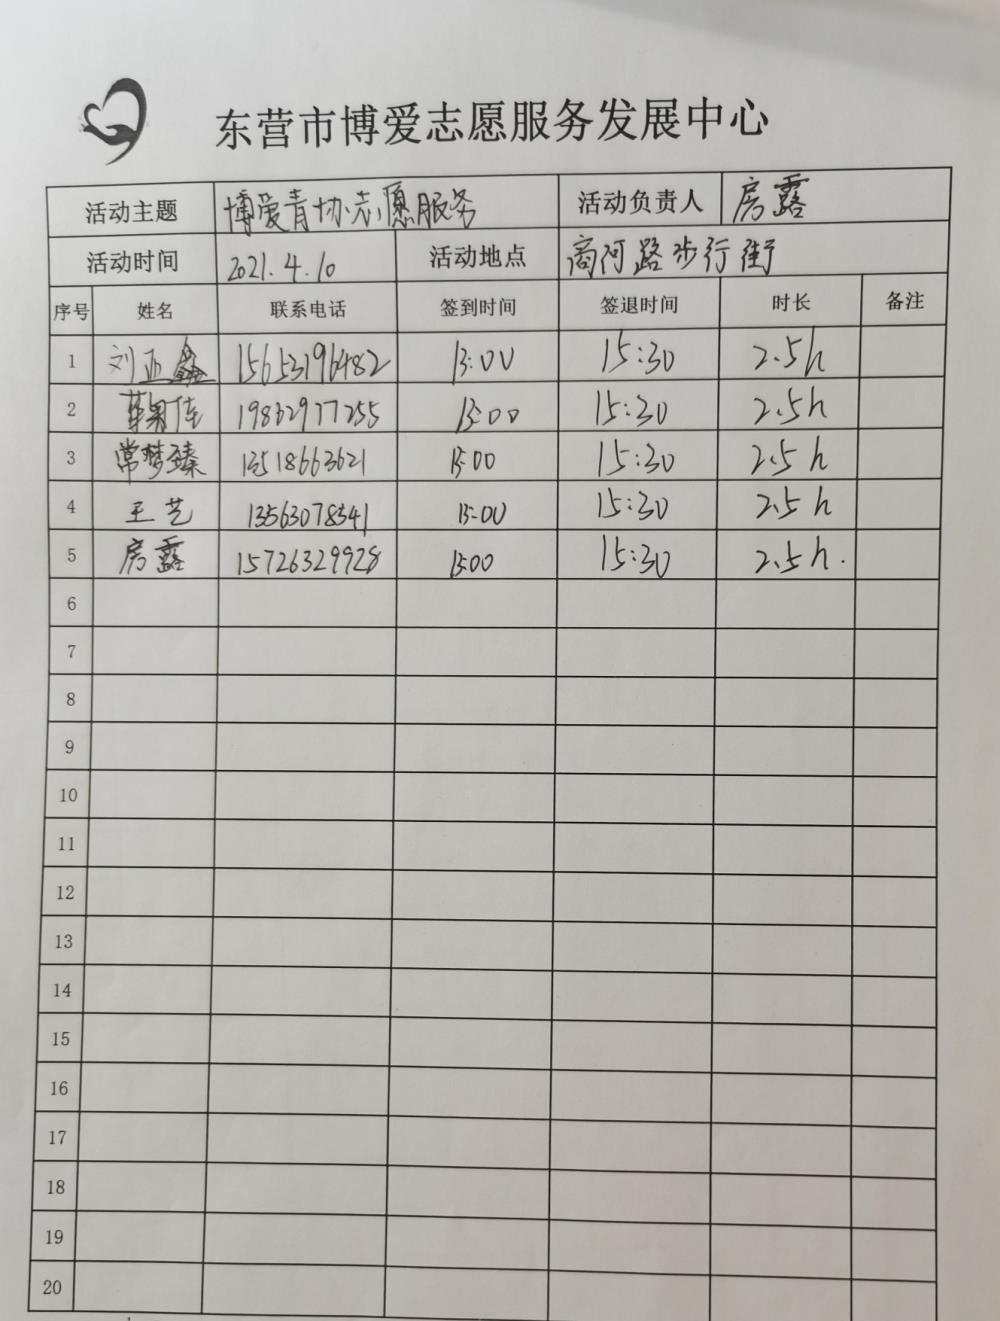 东营市博爱志愿服务发展中心
活动主题 博爱青协志愿服务 活动负责人 房露
活动时间 2021.4.10 活动地点 商河路步行街
序号 姓名 联系电话 签到时间 签退时间 时长 备注
1 刘亚鑫 15653196482 13:00 15:30 2.5h
2 19832977255 13:00 15:30 2.5h
3 常梦臻 13518663621 13:00 15:30 2.5h
4 王艺 13563078541 13:00 15:30 2.5h
5 房露 15726329928 13:00 15:30 2.5h.
6
7
8
9
10
11
12
13
14
15
16
17
18
19
20